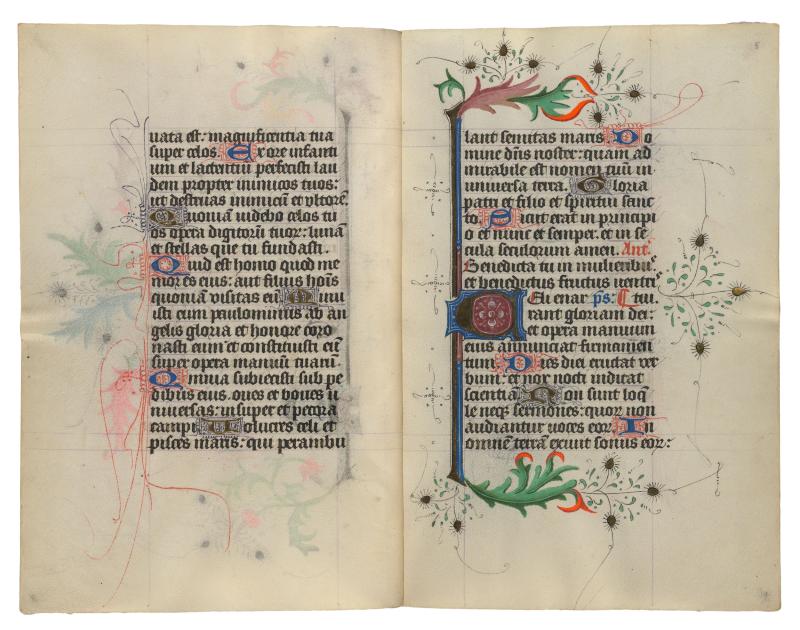 uata est: magnificentia tua
super celos. Ex ore infanti
um et lactentiu perfecisti lau
dem propter inimicos tuos:
ut destruas inimicu et ultore.
Quoniam uidebo celos tu
os opera digitoru tuor: luna
et stellas que tu fundasti.
Quid est homo quod me
mor es eius: aut filius hois
quoniam visitas eu. Minu
isti eum paulominus ab an
gelis gloria et honore coro
nasti eum et constituisti eu
super opera manuu tuaru.
Omnia subiecisti sub pe
dibus eius. oues et boues u
niuersas: insuper et pecora
campi. Uolucres celi et
pisces maris: qui perambu
lant semitas maris. Do
mine dns noster: quam ad
mirabile est nomen tuu in
uniuersa terra. Gloria
patri et filio et spiritui sanc
to. Sicut erat in principi
o et nunc et semper. et in se
cula seculorum amen. Ant.
Benedicta tu in mulieribus
et benedictus fructus ventris
Celi enar ps: tui
rant gloriam dei:
et opera manuum
eius annunciat firmamen
tum. Dies diei eructat ver
bum: et nox nocti indicat
scientia. Non sunt loq
le neq sermones: quor non
audiantur uoces eor. In
omne terra exiuit sonus eor: